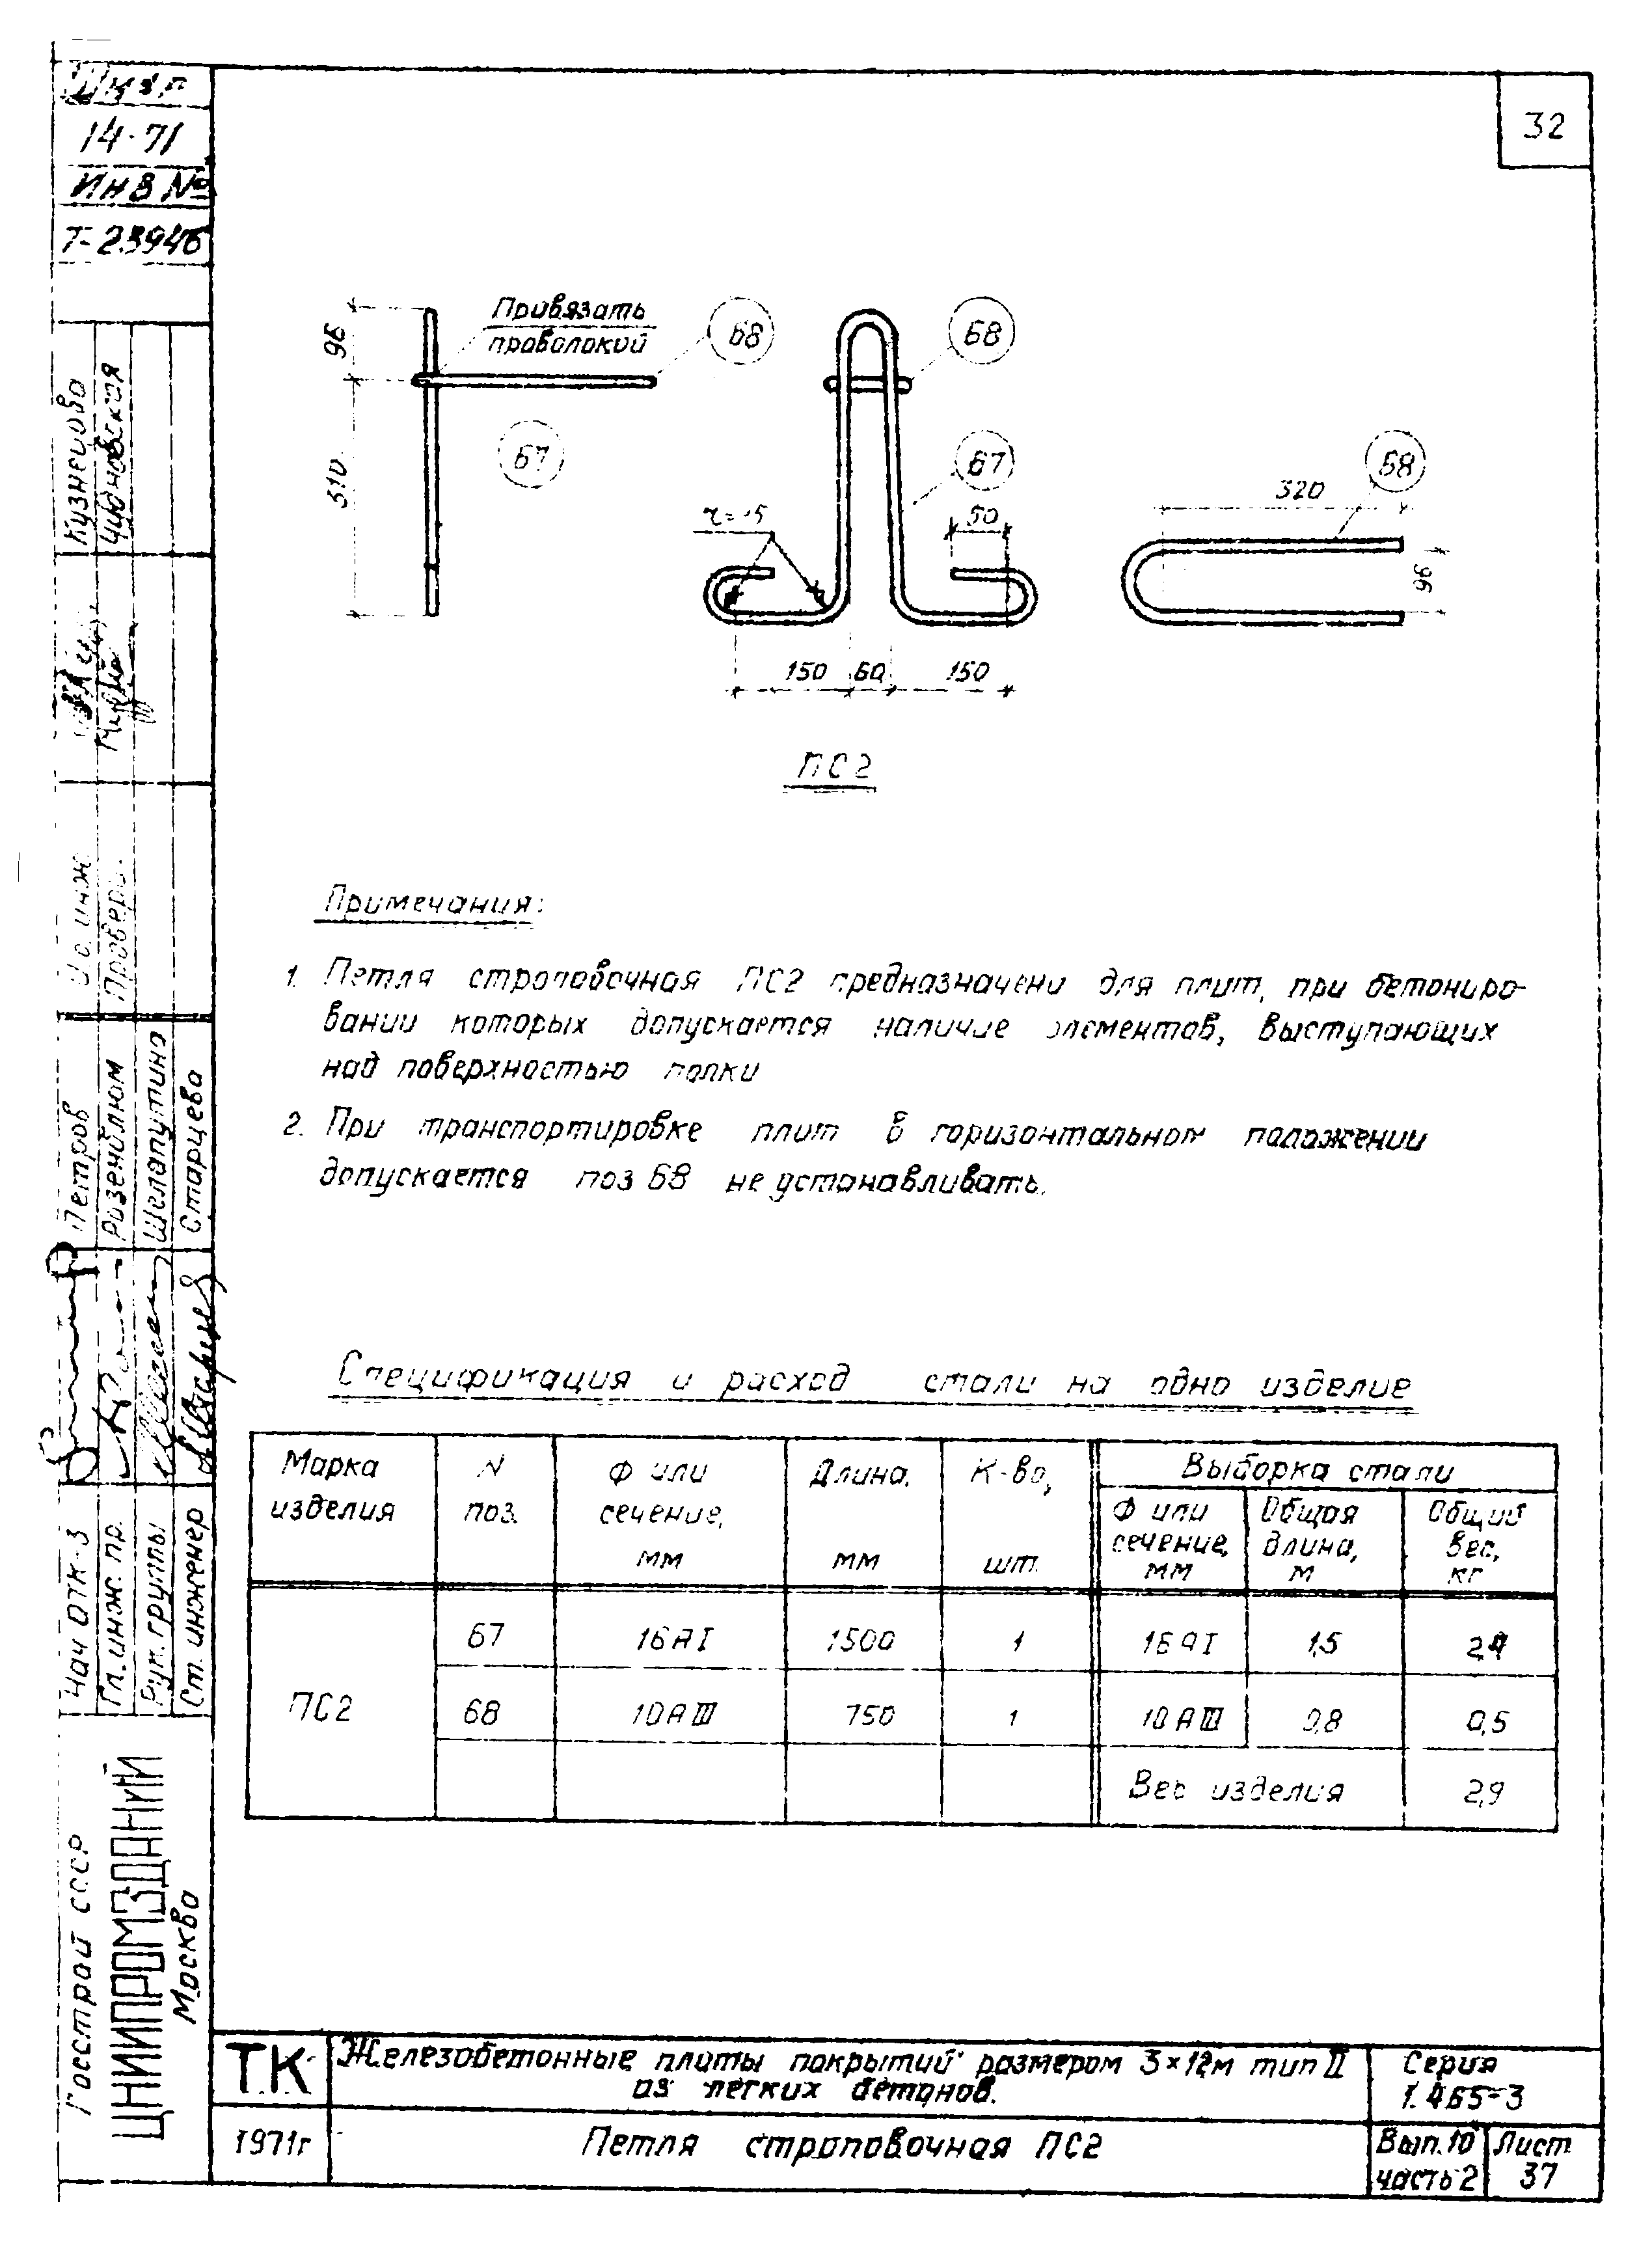 Шифр
14-71
Инв №
Т-23946
32
Привязать
проволокой
68
68
96
310
67
67
68
320
50
96
150 60 150
ПС2
Примечания:
1. Петля строповочная ПС2 предназначена для плит, при бетониро-
вании которых допускается наличие элементов, выступающих
над поверхностью полки
2. При транспортировке плит в горизонтальном положении
допускается поз 68 не устанавливать.
Спецификация и расход стали на одно изделие
Марка изделия
N поз.
Ф или сечение, мм
Длина, мм
К-во, шт.
Выборка стали
Ф или сечение, мм
Общая длина, м
Общий вес, кг
ПС2
67 16АI 1500 1 16АI 1,5 2,4
68 10АIII 750 1 10АIII 0,8 0,5
Вес изделия 2,9
Кузнецова
Чудновская
Проверил
Петров
Розенблюм
Шелапутина
Старцева
Нач ОТК-3
Гл. инж. пр.
Рук. группы
Ст. инженер
Госстрой СССР
ЦНИИПРОМЗДАНИЙ
Москва
ТК
Железобетонные плиты покрытий размером 3×12м тип II
из легких бетонов.
Серия
1.465-3
1971г
Петля строповочная ПС2
Вып. 10
часть 2
Лист
37